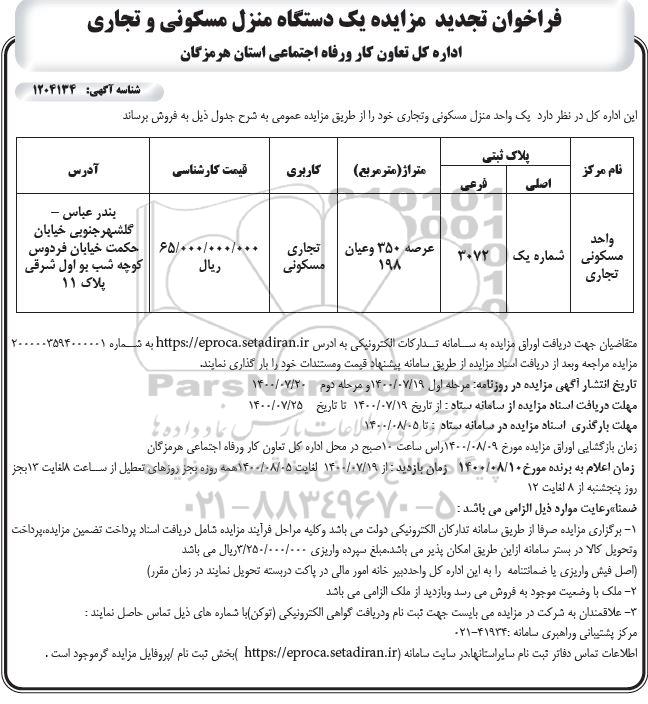 فراخوان تجدید مزایده یک دستگاه منزل مسکونی و تجاری
اداره کل تعاون کار ورفاه اجتماعی استان هرمزگان
شناسه آگهی: ۱۲۰۴۱۳۴
این اداره کل در نظر دارد یک واحد منزل مسکونی وتجاری خود را از طریق مزایده عمومی به شرح جدول ذیل به فروش برساند
نام مرکز پلاک ثبتی متراژ(مترمربع) کاربری قیمت کارشناسی آدرس
اصلی فرعی
واحد مسکونی تجاری شماره یک ۳۰۷۲ عرصه ۳۵۰ وعیان ۱۹۸ تجاری مسکونی ۶۵/۰۰۰/۰۰۰/۰۰۰ ریال بندر عباس – گلشهرجنوبی خیابان حکمت خیابان فردوس کوچه شب بو اول شرقی پلاک ۱۱
متقاضیان جهت دریافت اوراق مزایده به سـامانه تـدارکات الکترونیکی به ادرس https://eproca.setadiran.ir به شـماره ۲۰۰۰۰۰۳۵۹۴۰۰۰۰۰۱
مزایده مراجعه وبعد از دریافت اسناد مزایده از طریق سامانه پیشنهاد قیمت ومستندات خود را بار گذاری نمایند.
تاریخ انتشار آگهی مزایده در روزنامه: مرحله اول ۱۴۰۰/۰۷/۱۹و مرحله دوم ۱۴۰۰/۰۷/۲۰
مهلت دریافت اسناد مزایده از سامانه ستاد : از تاریخ ۱۴۰۰/۰۷/۱۹ تا تاریخ ۱۴۰۰/۰۷/۲۵
مهلت بارگذری اسناد مزایده در سامانه ستاد : تا ۱۴۰۰/۰۸/۰۵
زمان بازگشایی اوراق مزایده مورخ ۱۴۰۰/۰۸/۰۹راس ساعت ۱۰صبح در محل اداره کل تعاون کار ورفاه اجتماعی هرمزگان
زمان اعلام به برنده مورخ۱۴۰۰/۰۸/۱۰ زمان بازدید : از ۱۴۰۰/۰۷/۱۹ لغایت ۱۴۰۰/۰۸/۰۵همه روزه بجز روزهای تعطیل از سـاعت ۸لغایت ۱۳بجز
روز پنجشنبه از ۸ لغایت ۱۲
ضمنا»رعایت موارد ذیل الزامی می باشد :
۱- برگزاری مزایده صرفا از طریق سامانه تدارکان الکترونیکی دولت می باشد وکلیه مراحل فرآیند مزایده شامل دریافت اسناد پرداخت تضمین مزایده،پرداخت
وتحویل کالا در بستر سامانه ازاین طریق امکان پذیر می باشد.مبلغ سپرده واریزی ۳/۲۵۰/۰۰۰/۰۰۰ریال می باشد
(اصل فیش واریزی یا ضمانتنامه را به این اداره کل واحددبیر خانه امور مالی در پاکت دربسته تحویل نمایند در زمان مقرر)
۲- ملک با وضعیت موجود به فروش می رسد وبازدید از ملک الزامی می باشد
۳- علاقمندان به شرکت در مزایده می بایست جهت ثبت نام ودریافت گواهی الکترونیکی (توکن)با شماره های ذیل تماس حاصل نمایند :
مرکز پشتیبانی وراهبری سامانه :۴۱۹۳۴-۰۲۱
اطلاعات تماس دفاتر ثبت نام سایراستانها،در سایت سامانه (https://eproca.setadiran.ir )بخش ثبت نام /پروفایل مزایده گرموجود است .
ParsNamadData
۰۲۱-۸۸۳۴۹۶۷۰-۵